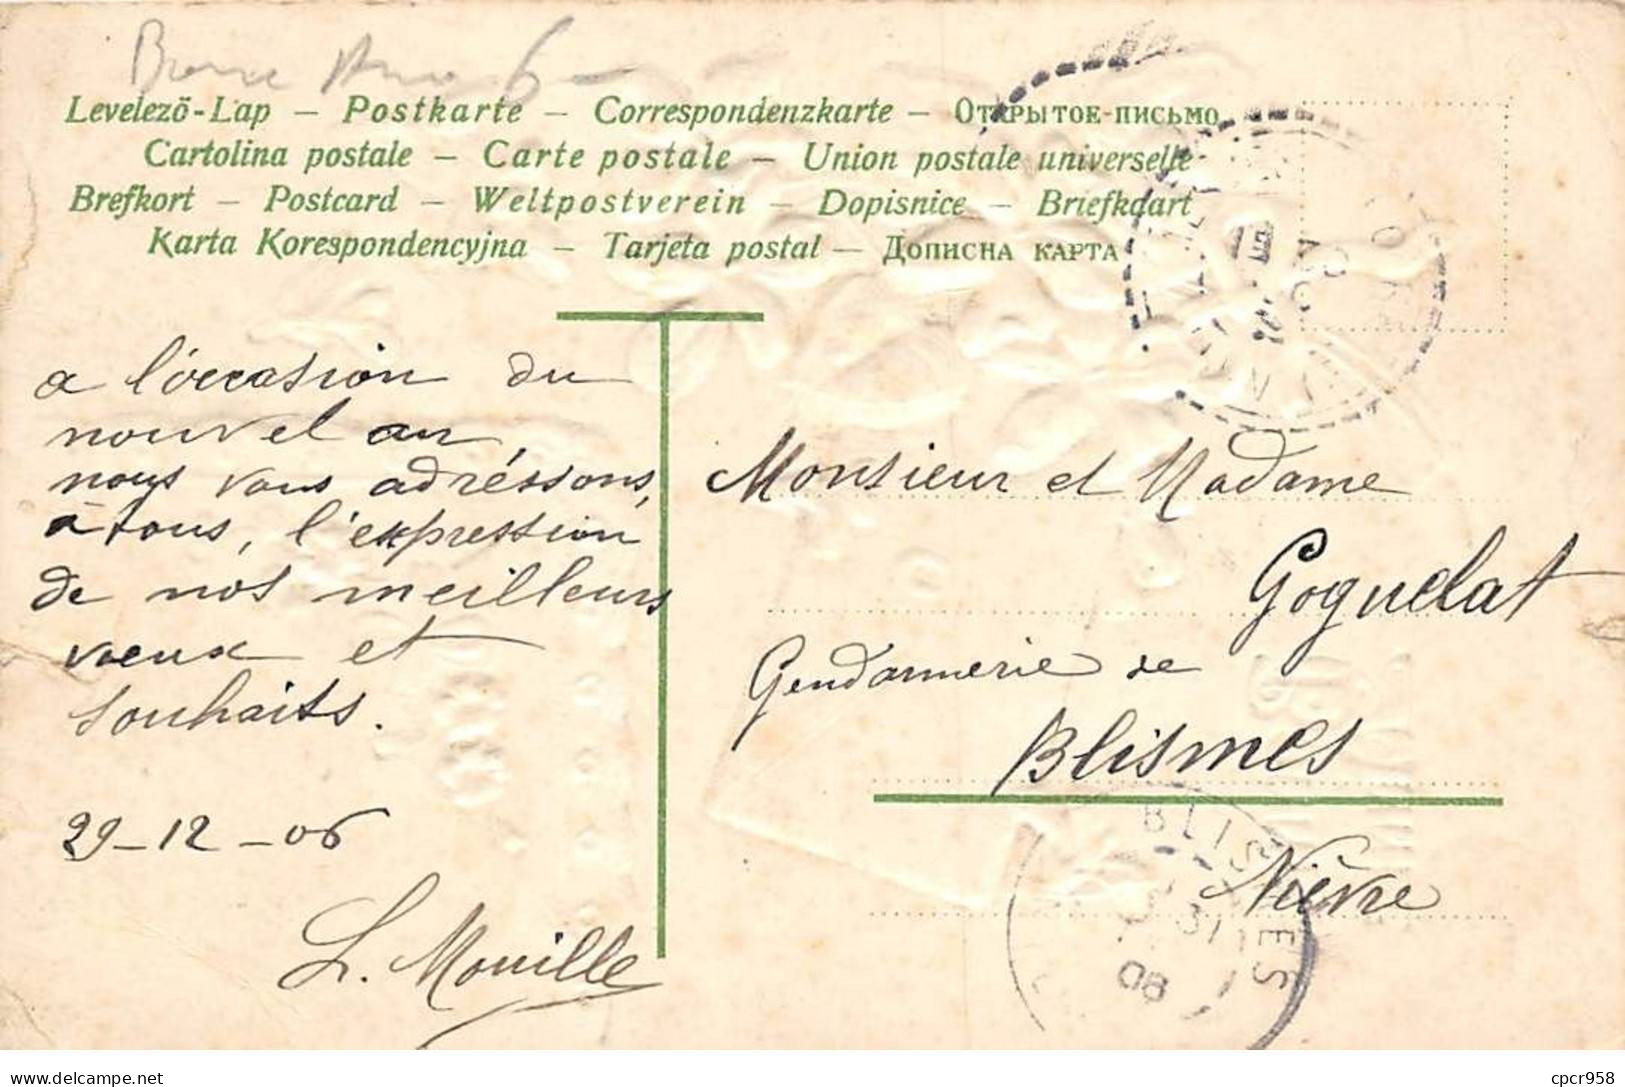 Levelezö-Lap – Postkarte – Correspondenzkarte – Открытое-письмо
Cartolina postale – Carte postale – Union postale universelle
Brefkort – Postcard – Weltpostverein – Dopisnice – Briefkaart
Karta Korespondencyjna – Tarjeta postal – Дописна карта
a l'occasion du
nouvel an
nous vous adréssons,
à tous, l'expression
de nos meilleurs
vœux et
souhaits.
29-12-06
L. Mouille
Monsieur et Madame
Goguelat
Gendarmerie de
Blismes
Nièvre
BLISMES
31
06
delcampe.net
cpcr958